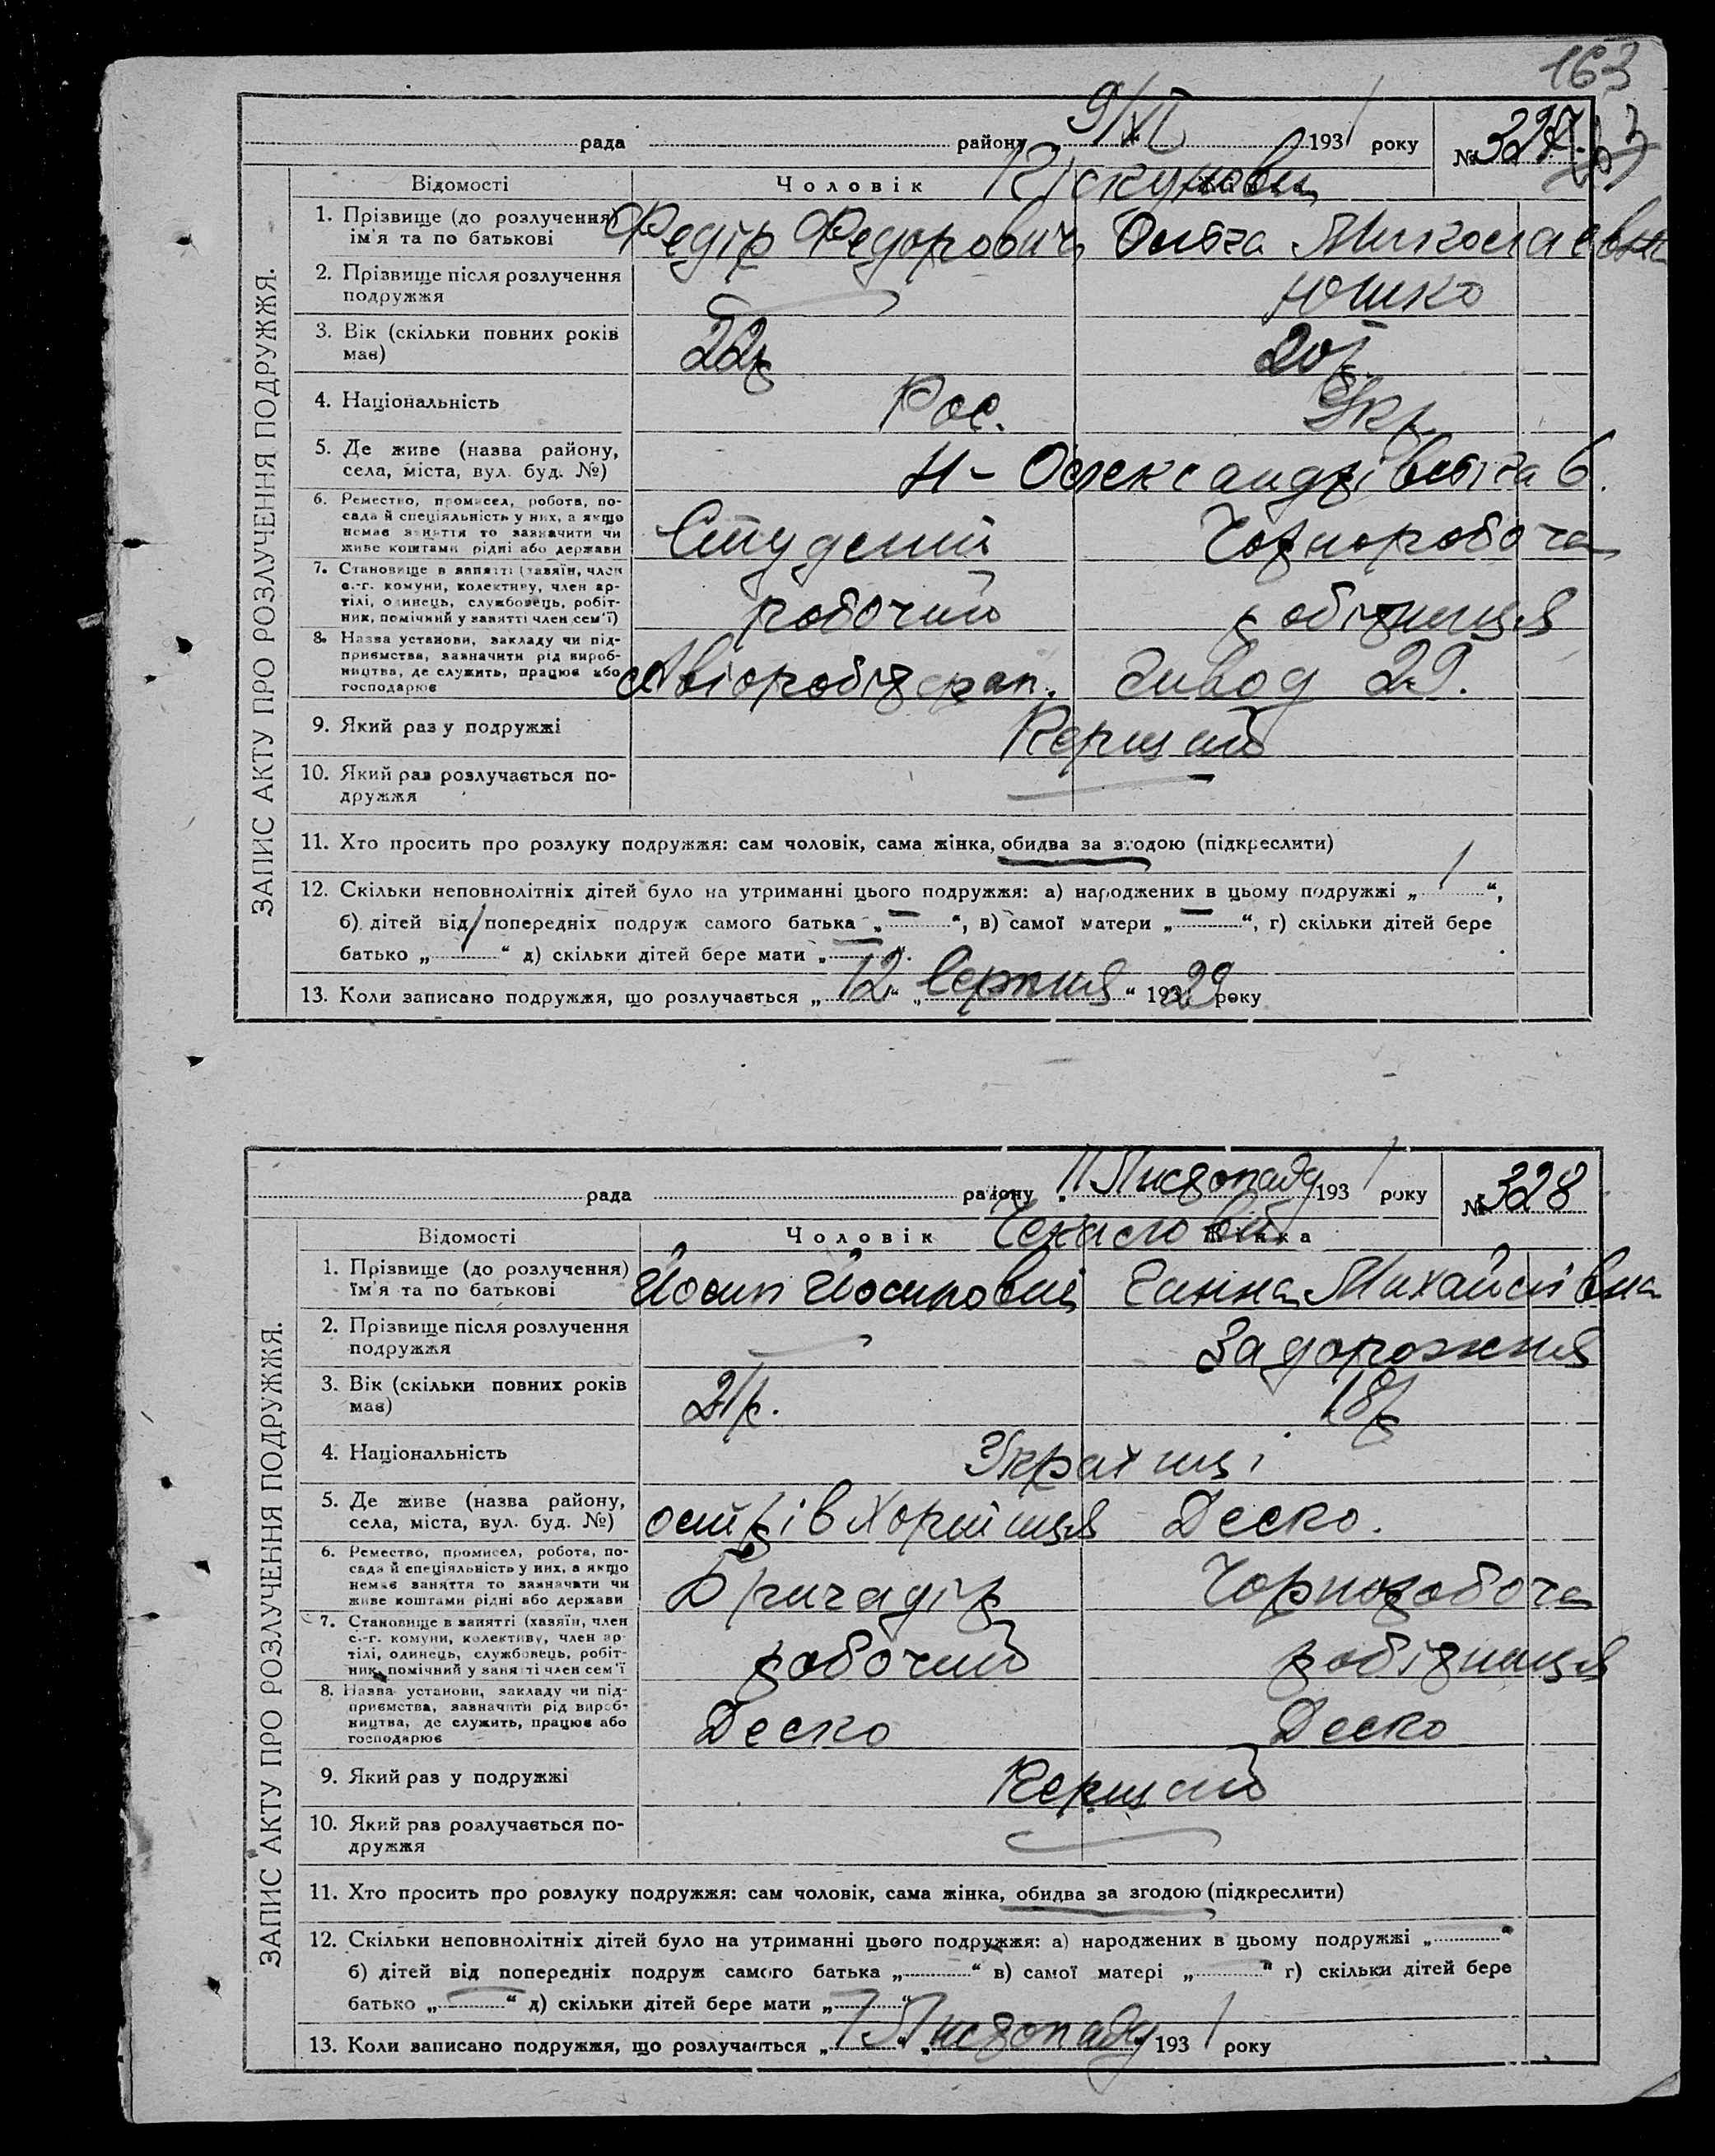 163
рада району 9/XI 1931 року № 327
Відомості Чоловік
ЗАПИС АКТУ ПРО РОЗЛУЧЕННЯ ПОДРУЖЖЯ.
1. Прізвище (до розлучення) ім'я та по батькові Федір Федорович Ольга Миколаєвна
2. Прізвище після розлучення подружжя — Юшко
3. Вік (скільки повних років має) 22р 20р
4. Національність Рос. Укр
5. Де живе (назва району, села, міста, вул. буд. №) Н-Олександрівська 6.
6. Ремество, промисел, робота, по-
сада й спеціяльність у них, а якщо
немає заняття то зазначити чи
живе коштами рідні або держави Студент Чорноробоча
7. Становище в занятті (хазяїн, член
с.-г. комуни, колективу, член ар-
тілі, одинець, службовець, робіт-
ник, помічний у занятті член сем'ї) робочий робітниця
8. Назва установи, закладу чи під-
приємства, зазначити рід вироб-
ництва, де служить, працює або
господарює Авіоробітфак. Завод 29.
9. Який раз у подружжі Перший
10. Який раз розлучається по-
дружжя —
11. Хто просить про розлуку подружжя: сам чоловік, сама жінка, обидва за згодою (підкреслити)
12. Скільки неповнолітніх дітей було на утриманні цього подружжя: а) народжених в цьому подружжі „ 1 “,
б) дітей від попередніх подруж самого батька „ — “, в) самої матери „ — “, г) скільки дітей бере
батько „ “ д) скільки дітей бере мати „ — “.
13. Коли записано подружжя, що розлучається „ 12 “ „ серпня “ 1929 року
рада району 11 Листопаду 1931 року № 328
Відомості Чоловік Жінка
ЗАПИС АКТУ ПРО РОЗЛУЧЕННЯ ПОДРУЖЖЯ.
1. Прізвище (до розлучення) ім'я та по батькові Йосип Йосипович Ганна Михайлівна
2. Прізвище після розлучення подружжя — Задорожня
3. Вік (скільки повних років має) 21р. 18р
4. Національність Українці
5. Де живе (назва району, села, міста, вул. буд. №) острів Хортиця Деско.
6. Ремество, промисел, робота, по-
сада й спеціяльність у них, а якщо
немає заняття то зазначити чи
живе коштами рідні або держави Бригадір Чорноробоча
7. Становище в занятті (хазяїн, член
с.-г. комуни, колективу, член ар-
тілі, одинець, службовець, робіт-
ник, помічний у занятті член сем'ї робочий робітниця
8. Назва установи, закладу чи під-
приємства, зазначити рід вироб-
ництва, де служить, працює або
господарює Деско Деско
9. Який раз у подружжі Перший
10. Який раз розлучається по-
дружжя —
11. Хто просить про розлуку подружжя: сам чоловік, сама жінка, обидва за згодою (підкреслити)
12. Скільки неповнолітніх дітей було на утриманні цього подружжя: а) народжених в цьому подружжі „ “
б) дітей від попередніх подруж самого батька „ “ в) самої матері „ “ г) скільки дітей бере
батько „ — “ д) скільки дітей бере мати „ — “
13. Коли записано подружжя, що розлучається „ 7 “ „ Листопаду “ 1931 року